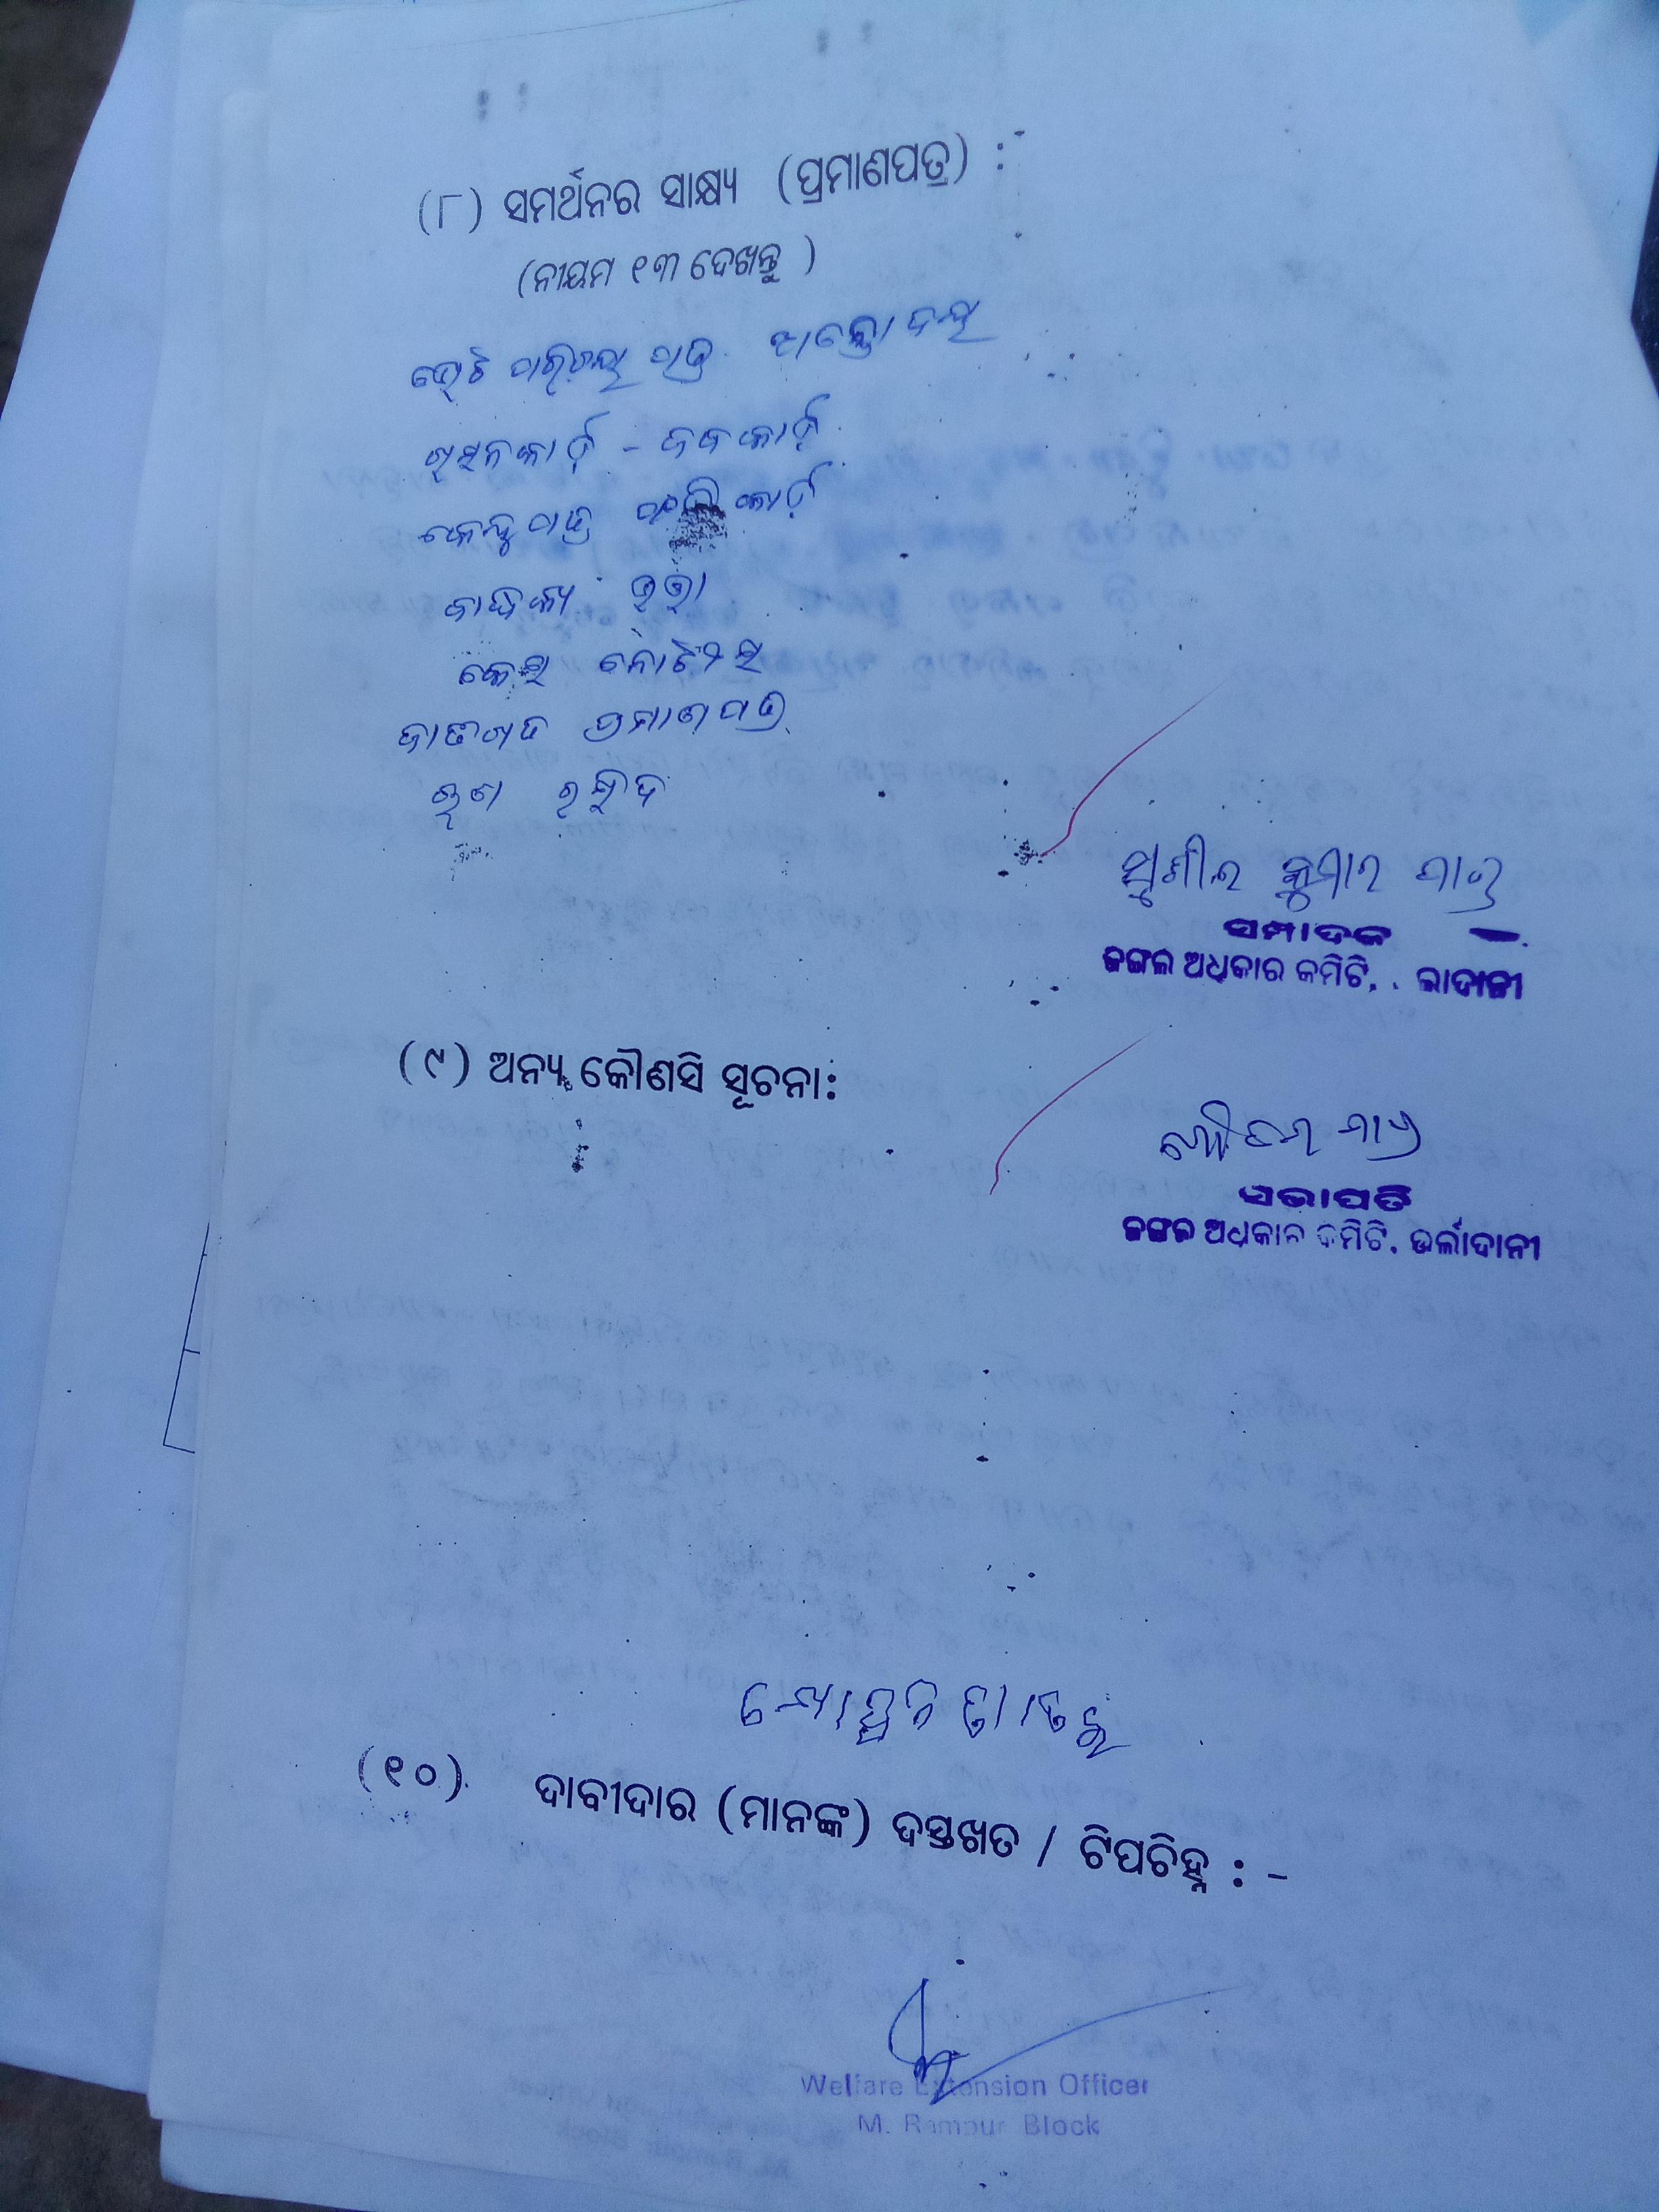 (୮) ସମର୍ଥନର ସାକ୍ଷ୍ୟ (ପ୍ରମାଣପତ୍ର) :
(ନୀୟମ ୧୩ ଦେଖନ୍ତୁ )
ଭୋଟ ପରିଚୟ ପତ୍ର
ରାସନକାର୍ଡ଼ - ଜବକାର୍ଡ଼
କେନ୍ଦୁପତ୍ର କାର୍ଡ଼
ବାର୍ଦ୍ଧକ୍ୟ ଭତ୍ତା
କେସ ନୋଟିସ
ଜାତିଗତ ପ୍ରମାଣପତ୍ର
ଋଣ ରସିଦ
ସୁଶୀଲ କୁମାର
ସମ୍ପାଦକ
ଜଙ୍ଗଲ ଅଧିକାର କମିଟି,
(୯) ଅନ୍ୟ କୌଣସି ସୂଚନା:
ସଭାପତି
ଜଙ୍ଗଲ ଅଧିକାର କମିଟି, ଭର୍ଲାଦାନୀ
(୧୦) ଦାବୀଦାର (ମାନଙ୍କ) ଦସ୍ତଖତ / ଟିପଚିହ୍ନ : -
Welfare Extension Officer
M. Rampur Block